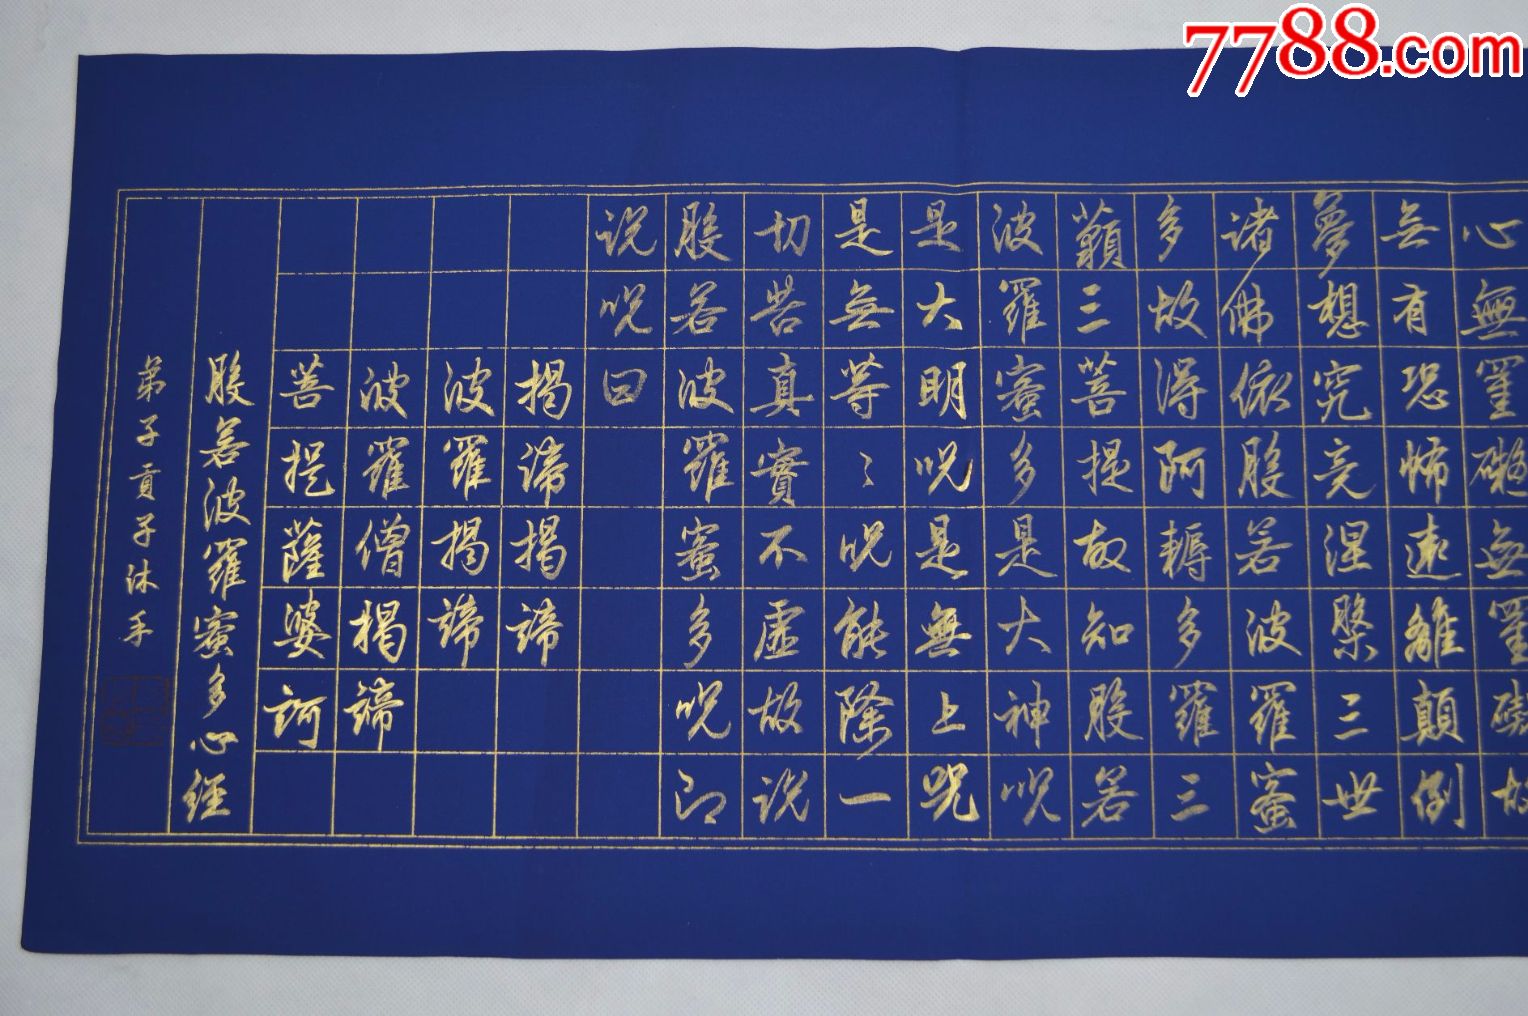 7788.com
心無罣礙無罣礙故
無有恐怖遠離顛倒
夢想究竟涅槃三世
諸佛依般若波羅蜜
多故得阿耨多羅三
藐三菩提故知般若
波羅蜜多是大神呪
是大明呪是無上咒
是無等〻呪能除一
切苦真實不虛故說
般若波羅蜜多呪即
说呪曰
揭諦揭諦
波羅揭諦
波羅僧揭諦
菩提薩婆訶
般若波羅蜜多心經
弟子貢子沐手